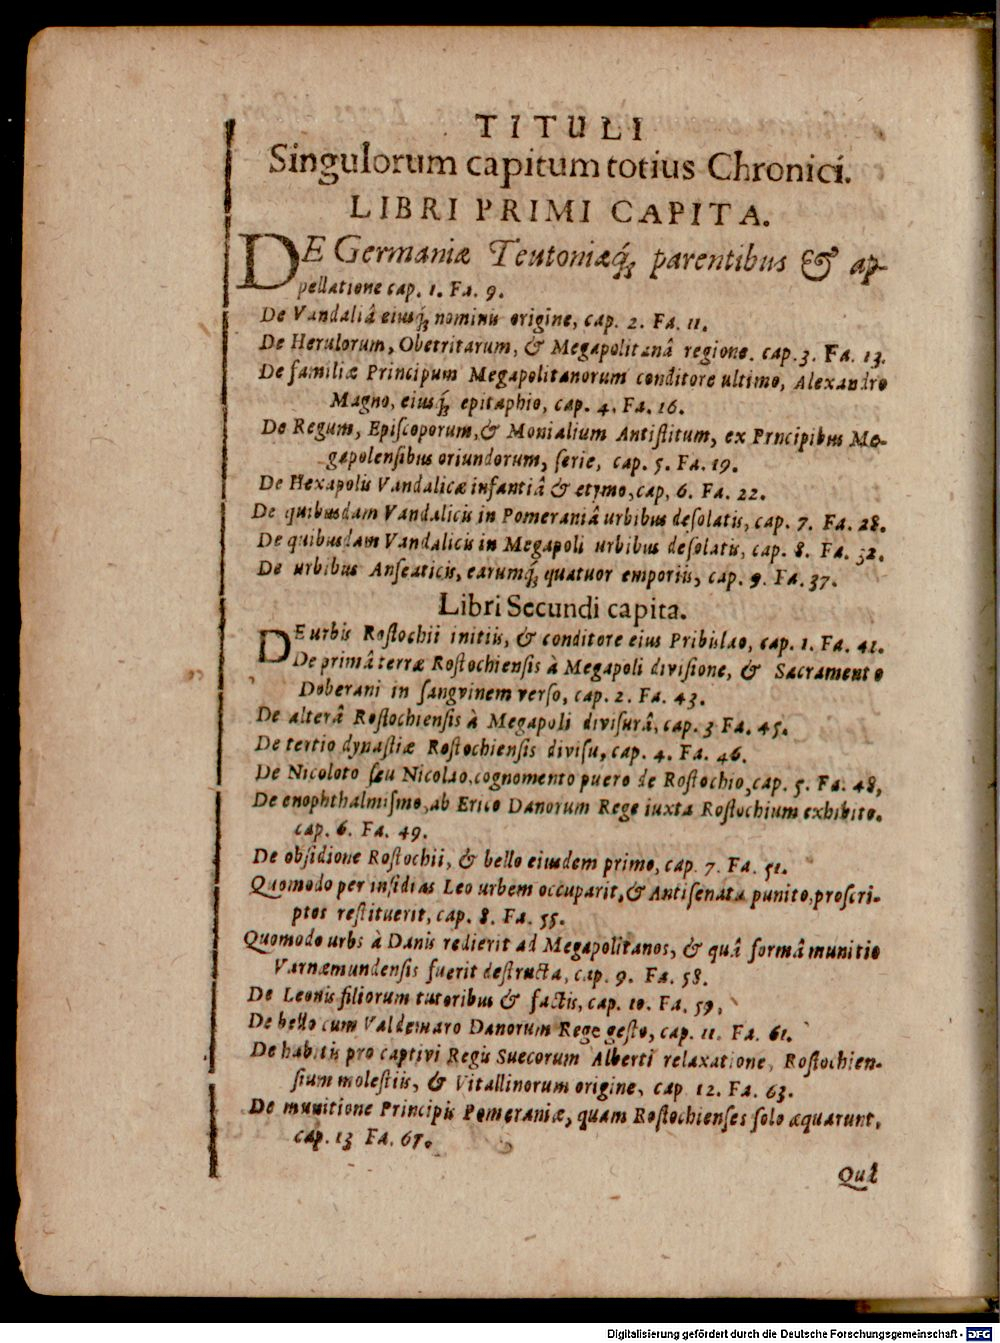 TITULI
Singulorum capitum totius Chronici.
LIBRI PRIMI CAPITA.
DE Germaniæ Teutoniæq́; parentibus & ap-
pellatione cap. 1. Fa. 9.
De Vandaliâ eiusq́; nominis origine, cap. 2. Fa. 11.
De Herulorum, Obetritarum, & Megapolitanâ regione. cap. 3. Fa. 13.
De familiæ Principum Megapolitanorum conditore ultimo, Alexandro
Magno, eiusq́; epitaphio, cap. 4. Fa. 16.
De Regum, Epiſcoporum, & Monialium Antiſtitum, ex Prncipibus Me-
gapolenſibus oriundorum, ſerie, cap. 5. Fa. 19.
De Hexapolis Vandalicæ infantiâ & etymo, cap, 6. Fa. 22.
De quibusdam Vandalicis in Pomeraniâ urbibus deſolatis, cap. 7. Fa. 28.
De quibusdam Vandalicis in Megapoli urbibus deſolatis, cap. 8. Fa. 32.
De urbibus Anſeaticis, earumq́; quatuor emporiis, cap. 9. Fa. 37.
Libri Secundi capita.
DE urbis Roſtochii initiis, & conditore eius Pribislao, cap. 1. Fa. 41.
De primâ terræ Roſtochienſis à Megapoli diviſione, & Sacramento
Doberani in ſangvinem verſo, cap. 2. Fa. 43.
De alterâ Roſtochienſis à Megapoli diviſurâ, cap. 3 Fa. 45.
De tertio dynaſtiæ Roſtochienſis diviſu, cap. 4. Fa. 46.
De Nicoloto ſeu Nicolao, cognomento puero de Roſtochio, cap. 5. Fa. 48,
De enophthalmiſmo, ab Erico Danorum Rege iuxta Roſtochium exhibito.
cap. 6. Fa. 49.
De obſidione Roſtochii, & bello eiusdem primo, cap. 7. Fa. 51.
Quomodo per inſidias Leo urbem occuparit, & Antiſenata punito, proſcri-
ptos reſtituerit, cap. 8. Fa. 55.
Quomodo urbs à Danis redierit ad Megapolitanos, & quâ formâ munitio
Varnæmundenſis fuerit deſtructa, cap. 9. Fa. 58.
De Leonis filiorum tutoribus & factis, cap. 10. Fa. 59,
De bello cum Valdemaro Danorum Rege geſto, cap. 11. Fa. 61.
De habitis pro captivi Regis Suecorum Alberti relaxatione, Roſtochien-
ſium moleſtiis, & Vitallinorum origine, cap 12. Fa. 63.
De munitione Principis Pomeraniæ, quam Roſtochienſes ſolo æquarunt,
cap. 13 Fa. 67.
Digitalisierung gefördert durch die Deutsche Forschungsgemeinschaft - DFG